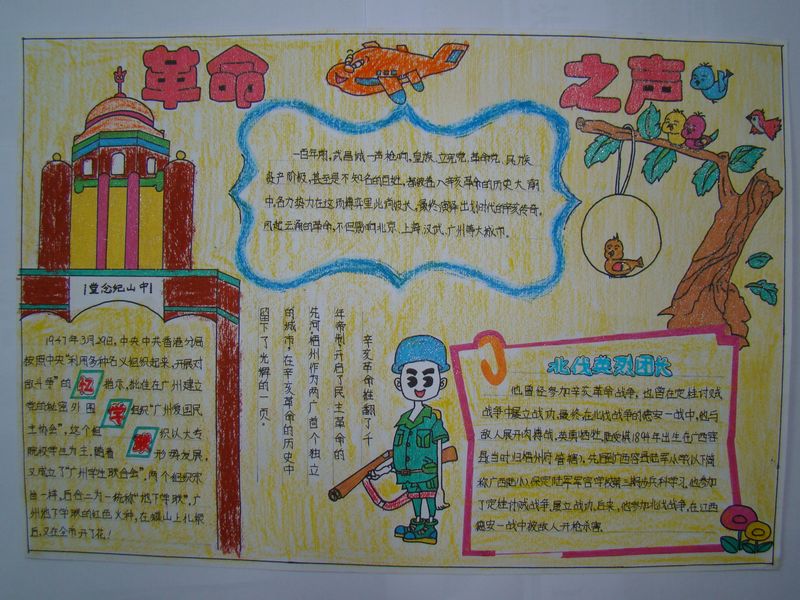 革命之声
一百年前，武昌城一声枪响，皇族、立宪党、革命党、民族
资产阶级，甚至是不知名的百姓，都被卷入辛亥革命的历史大潮
中。各力势力在这场博弈里此消彼长，最终演绎出划时代的辛亥传奇。
风起云涌的革命，不但影响北京、上海、武汉、广州等大城市。
中山纪念堂
1947年3月29日，中央中共香港分局
按照中央"利用多种名义组织起来，开展对
敌斗争"的 忆 指示，批准在广州建立
党的秘密外围 学 组织"广州爱国民
主协会"，这个组 联 织以大专
院校学生为主，随着 形势发展，
又成立了"广州学生联合会"，两个组织亲
如一样，后合二为一统称"地下学联"，广
州地下学联的红色火种，在
后，又在全市开了花！
辛亥革命推翻了千
年帝制开启了民主革命的
先河。梧州作为两广首个独立
的城市，在辛亥革命的历史中
留下了光辉的一页。
北伐英烈团长
他曾经参加辛亥革命战争，也曾在定桂讨贼
战争中屡立战功，最终在北伐战争的德安一战中，他与
敌人展开肉搏战，英勇牺牲。陆俊祺1894年出生在广西容
县(当时归梧州府管辖)，先后就广西容县陆军从学(以下简
称广西陆小)、保定陆军军官学校第三期步兵科学习。他参加
了定桂讨贼战争，屡立战功。后来，他参加北伐战争，在江西
德安一战中被敌人开枪杀害。